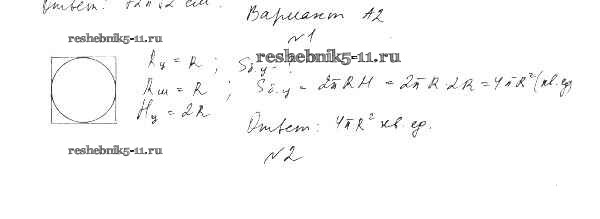 Ответ: 12π√2 см.
Вариант А2
№1
reshebnik5-11.ru
Rц = R ; Sб.ц - ?
reshebnik5-11.ru
Rш = R ; Sб.ц = 2πRH = 2πR·2R = 4πR² (кв. ед
Hц = 2R
Ответ: 4πR² кв. ед.
reshebnik5-11.ru
№2